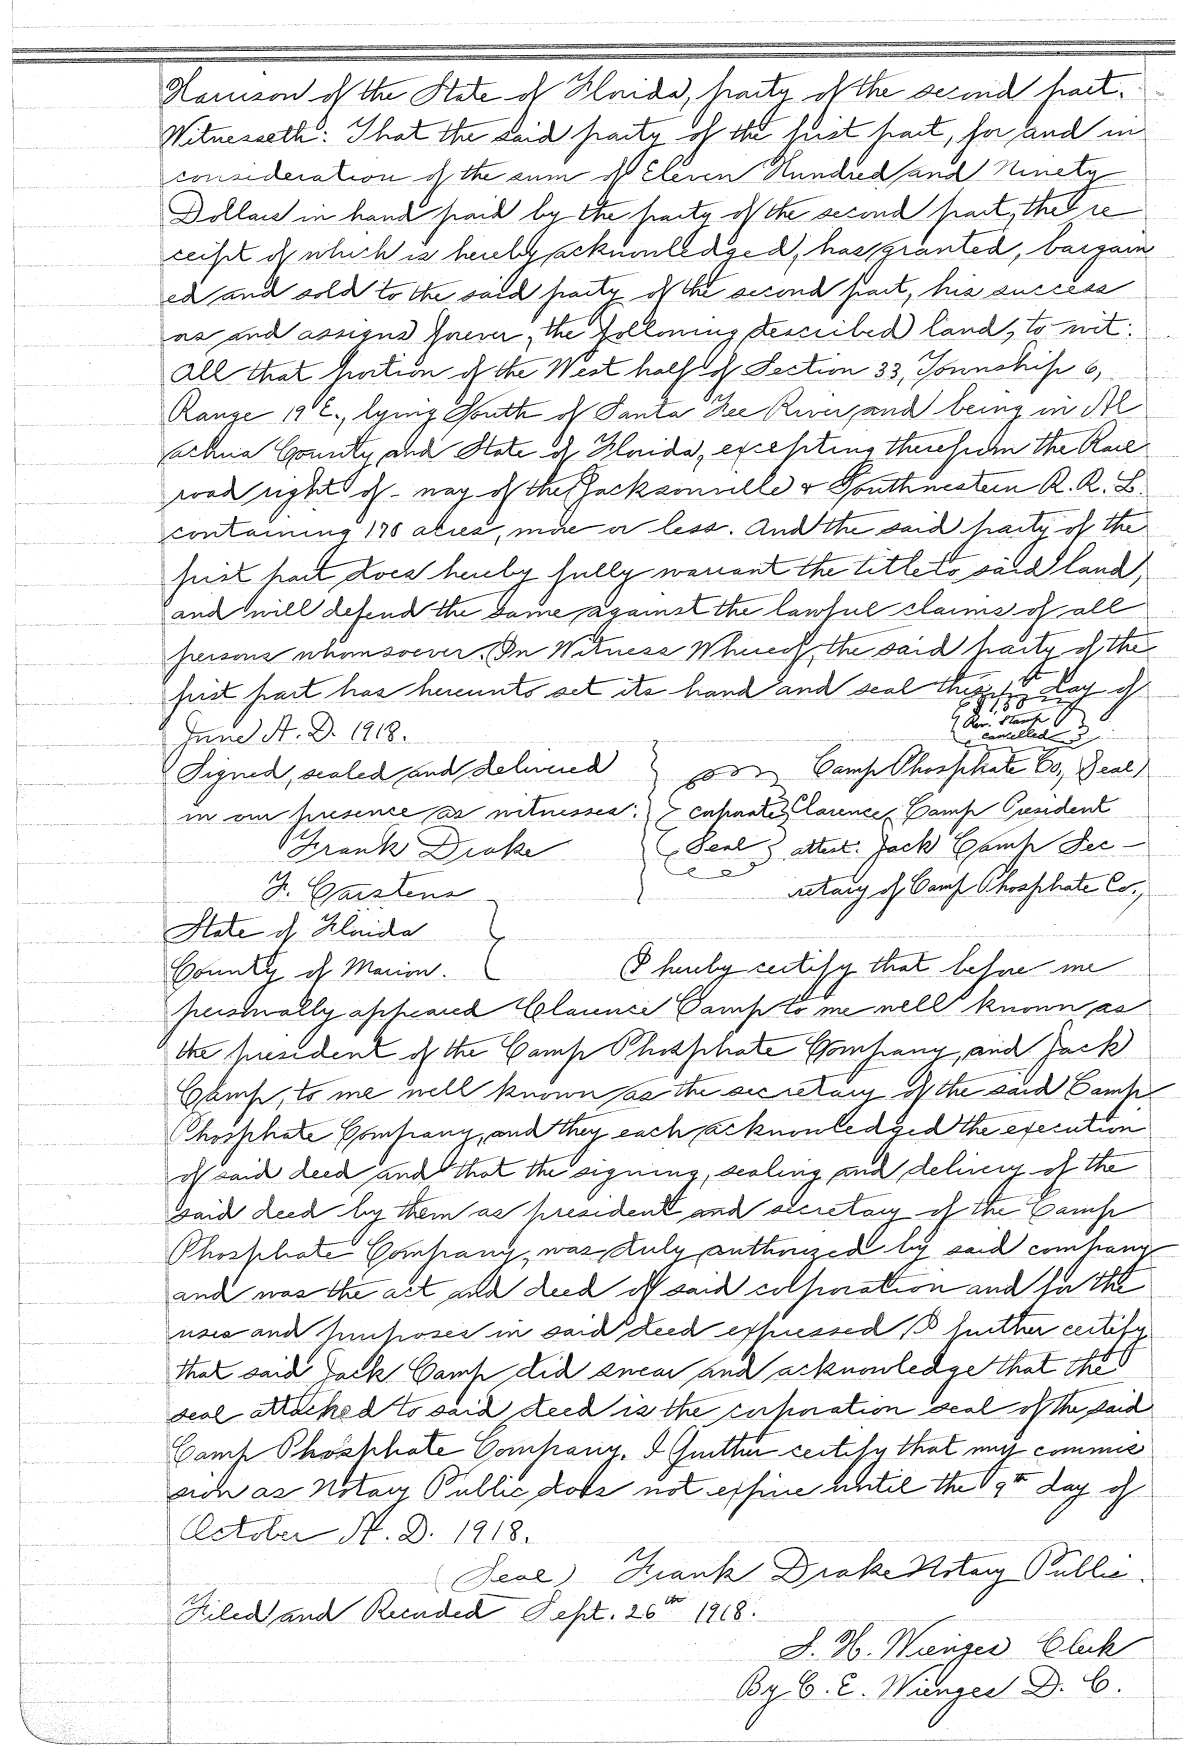 Harrison of the State of Florida, party of the second part.
Witnesseth: That the said party of the first part, for and in
consideration of the sum of Eleven Hundred and Ninety
Dollars in hand paid by the party of the second part, the re
ceipt of which is hereby acknowledged, has granted, bargain
ed and sold to the said party of the second part, his success
ors and assigns forever, the following described land, to wit:
All that portion of the West half of Section 33, Township 6,
Range 19 E., lying South of Santa Fee River, and being in Al
achua County and State of Florida, excepting therefrom the Rail
road right of-way of the Jacksonville & Southwestern R. R. L.
containing 170 acres, more or less. And the said party of the
first part does hereby fully warrant the title to said land,
and will defend the same against the lawful claims of all
persons whomsoever. In Witness Whereof, the said party of the
first part has hereunto set its hand and seal this day of
June A. D. 1918.
Rev. Stamp
cancelled
Signed, sealed and delivered Camp Phosphate Co, Seal)
in our presence as witnesses: corporate Clarence Camp President
Frank Drake Seal attest: Jack Camp Sec-
F. Carstens retary of Camp Phosphate Co.,
State of Florida
County of Marion. I hereby certify that before me
personally appeared Clarence Camp to me well known as
the president of the Camp Phosphate Company, and Jack
Camp, to me well known as the secretary of the said Camp
Phosphate Company, and they each acknowledged the execution
of said deed and that the signing, sealing and delivery of the
said deed by them as president and secretary of the Camp
Phosphate Company, was duly authorized by said company
and was the act and deed of said corporation and for the
uses and purposes in said deed expressed I further certify
that said Jack Camp did swear and acknowledge that the
seal attached to said deed is the corporation seal of the said
Camp Phosphate Company. I further certify that my commis
sion as Notary Public does not expire until the 9th day of
October A. D. 1918.
(Seal) Frank Drake Notary Public.
Filed and Recorded Sept. 26th 1918.
S. H. Wienges Clerk
By C. E. Wienges D. C.